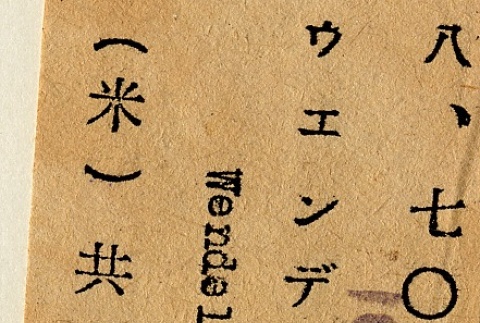 八、七〇
ウエンデ
Wendel
(米)共